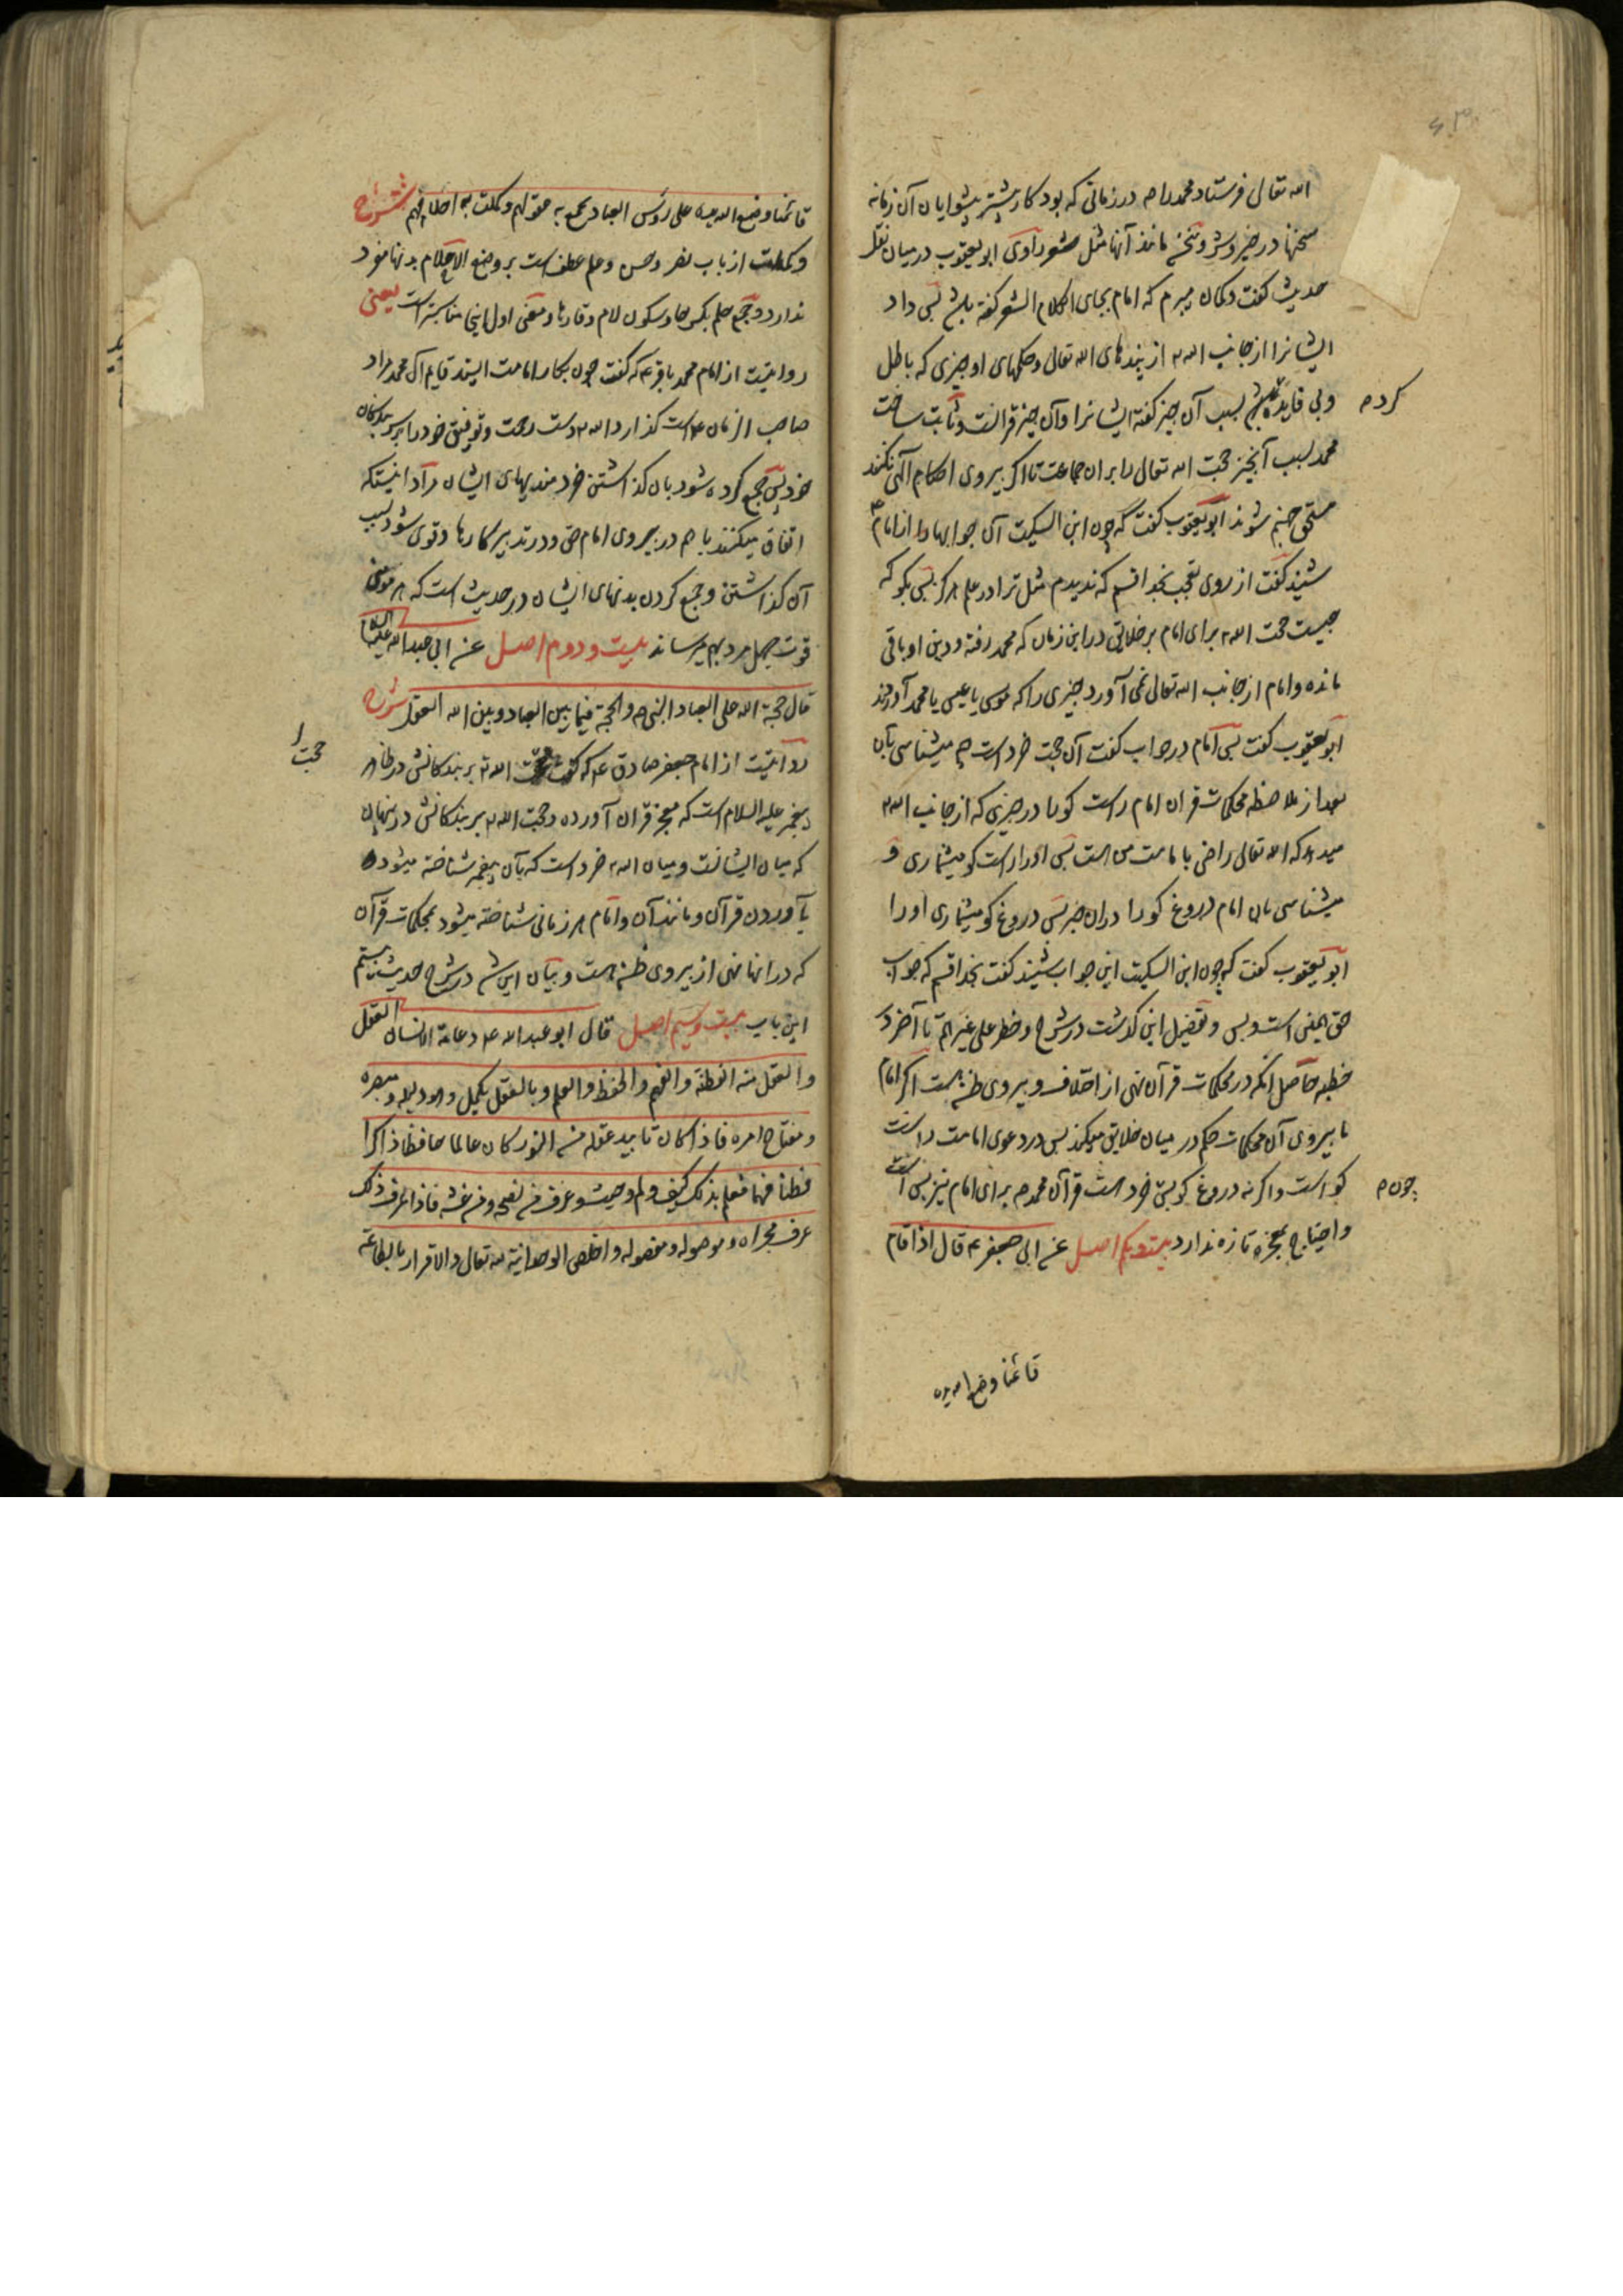 الله تعالی فرستاد محمد را ص در زمانی که بود کار بیشتر پیشوایان آن زمانه
سخنها در خیر و شر و سخن مانند آنها مثل شعر راوی ابو یعقوب در میان نقل
حدیث گفت و گمان میبرم که امام بجای الکلام الشعر گفته باشد پس داد
ایشانرا از جانب الله از پندهای الله تعالی و حکمهای او چیزی که باطل
و بی فایده بسبب آن چیز گفته ایشانرا و آن چیز قرآنست و ثابت ساخت
کرد م
محمد بسبب آنچیز حجت الله تعالی را بر آن جماعت تا اگر پیروی احکام الهی نکنند
مستحق جهنم شوند ابو یعقوب گفت که چون ابن السکیت آن جوابها را از امام
شنید گفت از روی تعجب بخدا قسم که ندیدم مثل ترا در علم هرگز پس بگو که
چیست حجت الله برای امام بر خلایق در این زمان که محمد رفته و دین او باقی
مانده و امام از جانب الله تعالی نمی آورد چیزی را که موسی یا عیسی یا محمد آوردند
ابو یعقوب گفت پس امام در جواب گفت آن حجت خرد است چه میشناسی بآن
بعد از ملاحظه محکمات قرآن امام راست گو را در چیزی که از جانب الله
میدارد که الله تعالی راضی با مامت من است پس او را راست گو میشماری و
میشناسی بآن امام دروغ گو را در آن خبر پس دروغ گو میشماری او را
ابو یعقوب گفت که چون ابن السکیت این جواب شنید گفت بخدا قسم که جواب
حق همین است و بس و تفصیل این گذشت در شرح و خطر علی غیرهم تا آخر در
خطبه حاصل آنکه در محکمات قرآن نهی از اختلاف و پیروی ظن هست اگر امام
با پیروی آن محکمات حکم در میان خلایق میکند پس در دعوی امامت راست
گو است و اگر نه دروغ گو پس خرد است قرآن محمد ص برای امام نیز بس است
چون م
و احتیاج بمعجزه تازه ندارد بیست و یکم اصل عن ابی جعفر ع قال اذا قام
قائمنا وضع الله یده
قائمنا وضع الله یده علی رؤس العباد فجمع به عقولهم و کملت به احلامهم شرح
و کملت از باب نصر و حسن و علم عطف است بر وضع الاحلام بدنها مفرد
ندارد و جمع حلم بکسر حا و سکون لام وقارها و معنی اول اینجا مناسبتر است یعنی
روایتست از امام محمد باقر ع که گفت چون بکار امامت ایستد قایم آل محمد مراد
صاحب الزمان ع است گذارد الله دست رحمت و توفیق خود را بر سر بندگان
خود پس جمع کرده شود بآن گذاشتن خردمندیهای ایشان مراد اینستکه
اتفاق میکنند با هم در پیروی امام حق و در تدبیر کارها و قوی شود بسبب
آن گذاشتن و جمع کردن بدنهای ایشان در حدیث است که هر مؤمنی
قوت چهل مرد بهم میرساند بیست و دوم اصل عن ابی عبدالله علیه السلام
قال حجة الله علی العباد النبی ص و الحجة فیما بین العباد و بین الله العقل شرح
روایتست از امام جعفر صادق ع که گفت حجت الله بر بندگانش در ظاهر
حجت را
پیغمبر علیه السلام است که معجز قرآن آورده و حجت الله بر بندگانش در پنهان
که میان ایشانست و میان الله خرد است که بآن پیغمبر شناخته میشود
بآوردن قرآن و مانند آن و امام هر زمانی شناخته میشود بمحکمات قرآن
که در آنها نهی از پیروی ظن هست و بیان این شد در شرح حدیث بیستم
این باب بیست و سیم اصل قال ابو عبدالله ع دعامة الانسان العقل
و العقل منه الفطنة و الفهم و الحفظ و العلم و بالعقل یکمل و هو دلیله و مبصره
و مفتاح امره فاذا کان تایید عقله من النور کان عالما حافظا ذاکرا
فطنا فهما فعلم بذلک کیف و لم و حیث و عرف من نصحه و من غشه فاذا عرف ذلک
عرف مجراه و موصوله و مفصوله و اخلص الوحدانیة لله تعالی و الاقرار بالطاعة